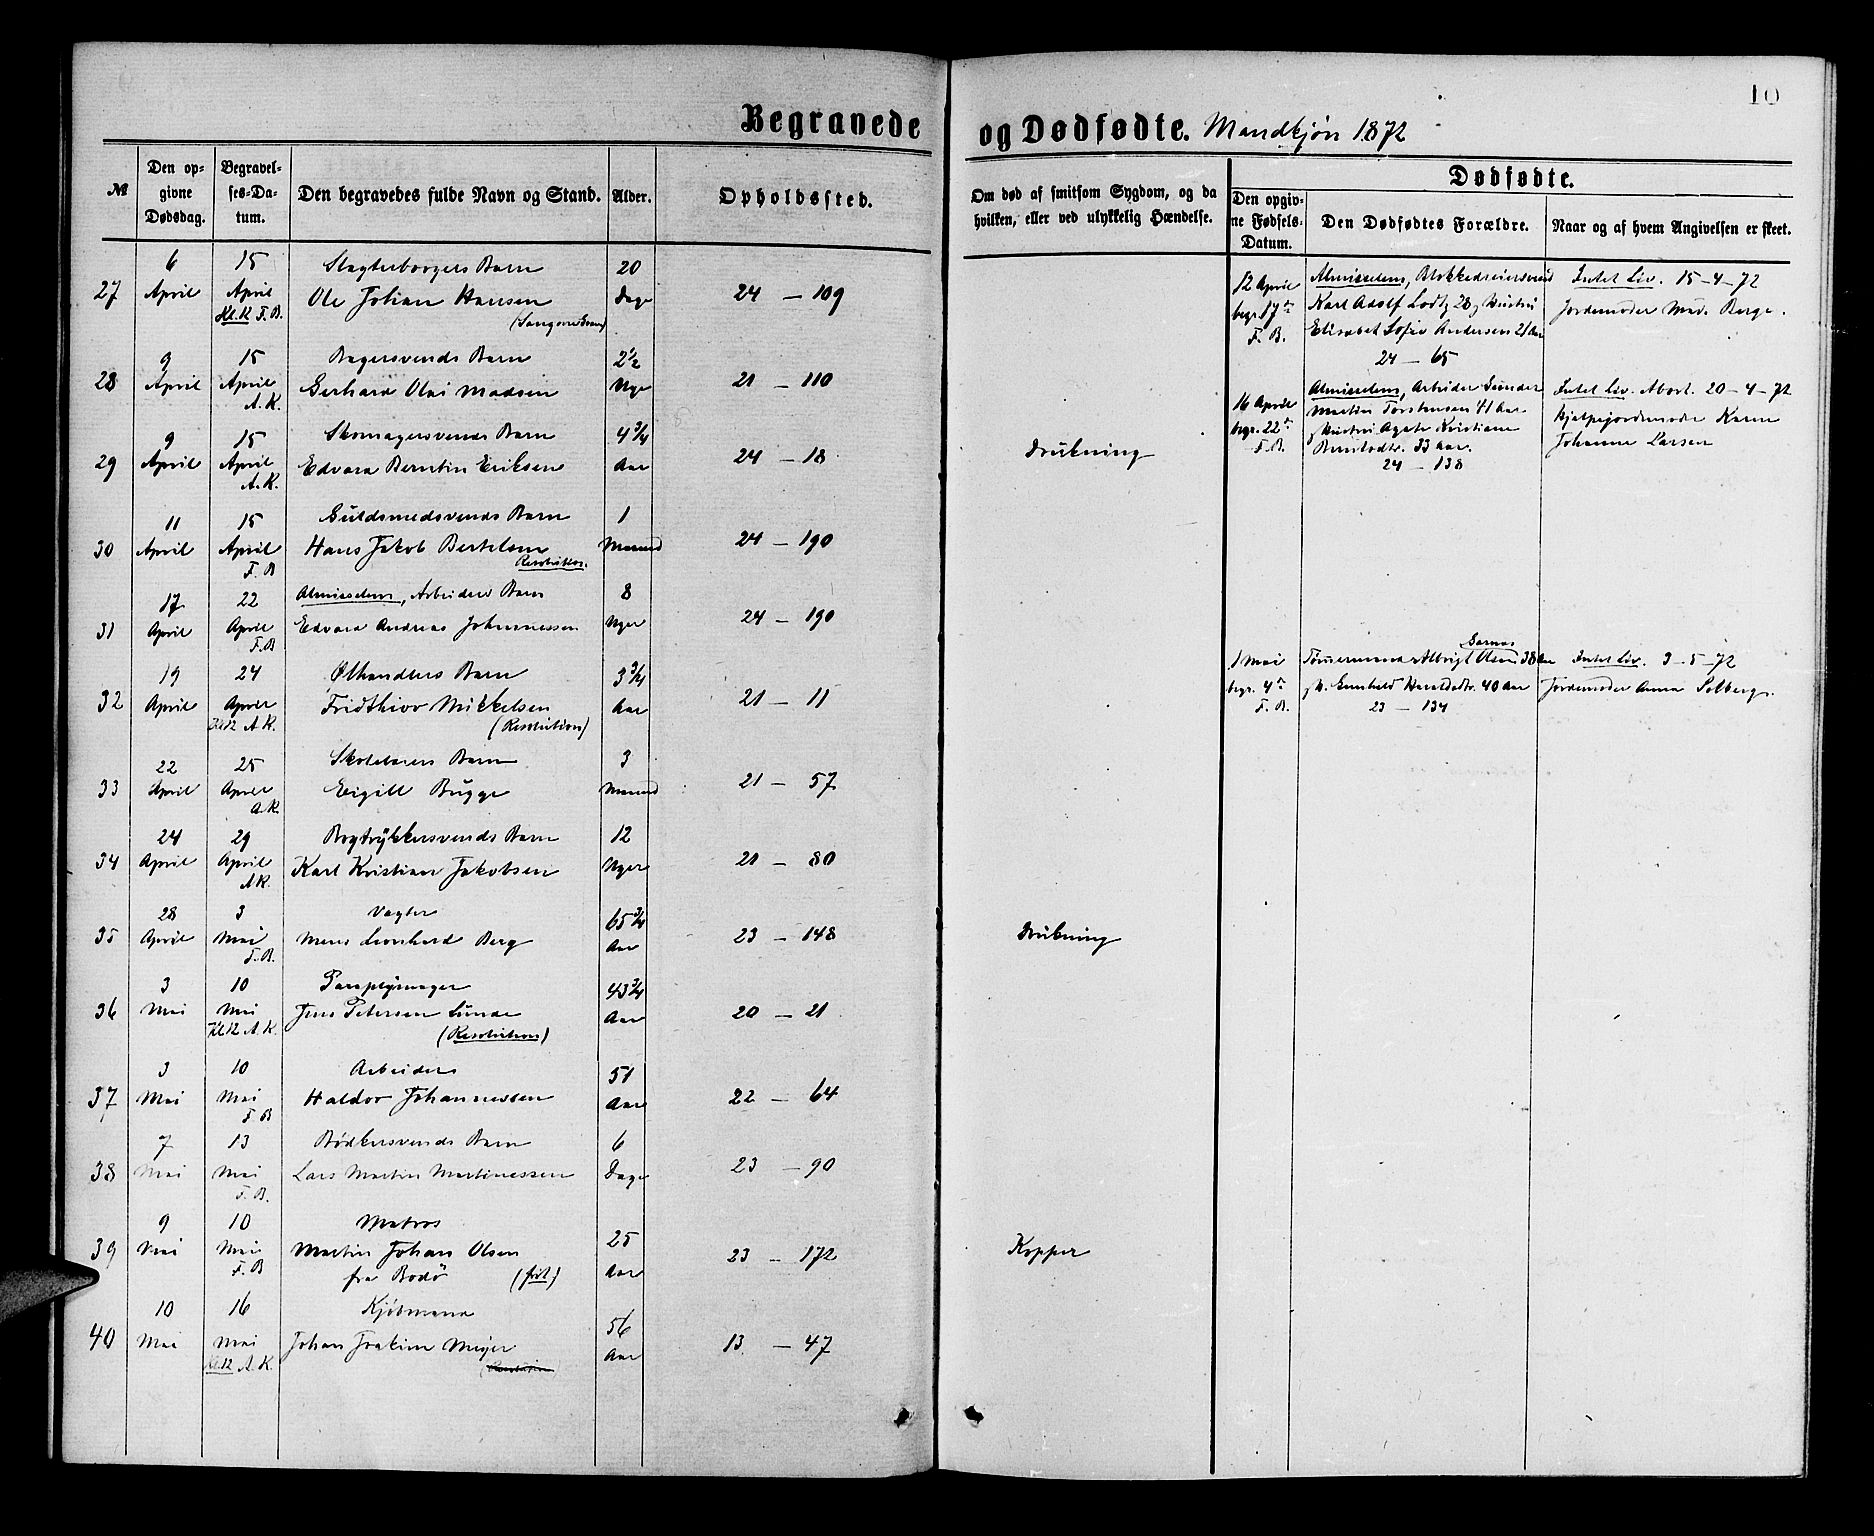 10
Begravede og Dødfødte. Mandkjøn 1872
№
Den opgivne Dødsdag.
Begravelses-Datum.
Den begravedes fulde Navn og Stand.
Alder.
Opholdssted.
Om død af smitsom Sygdom, og da hvilken, eller ved ulykkelig Hændelse.
Dødfødte.
Den opgivne Fødsels-Datum.
Den Dødfødtes Forældre.
Naar og af hvem Angivelsen er skeet.
6 15 Slagterborgers Barn 20
27 April April Ole Johan Hansen Dage 24 – 109
Kl. 12 F. B.
9 15 Bagersvends Barn 2 1/2
28 April April Gerhard Olai Madsen Uge 21 – 110
A. K.
9 15 Skomagersvends Barn 4 3/4
29 April April Edvard Berntin Eriksen Aar 24 – 18 Drukning
A. K.
11 15 Guldsmedsvends Barn 1
30 April April Hans Jakob Bertelsen Maaned 24 – 190
F. B Resolution.
17 22 Almisselem, Arbeiders Barn 8
31 April April Edvard Andreas Johannessen Uger 24 – 190
F. B
19 24 Ølhandlers Barn 3 3/4
32 April April Fridthiov Mikkelsen Aar 21 – 11
Kl 12 A. K. (Resolution)
22 25 Skolelærers Barn 3
33 April April Eigill Bugge Maaned 21 – 57
A. K.
24 29 Bogtrykkersvends Barn 12
34 April April Karl Kristian Jakobsen Uger 21 – 80
A K.
28 3 Vægter 65 3/4
35 April Mai Mons Leonhard Berg Aar 23 – 148 Drukning
F. B.
3 10 Paraplymager 43 3/4
36 Mai Mai Jens Petersen Lunde Aar 20 – 21
Kl 12 A. K. (Resolution)
3 10 Arbeider 51
37 Mai Mai Haldor Johannessen Aar 22 – 64
F. B
7 13 Bødkersvends Barn 6
38 Mai Mai Lars Martin Martinessen Dage 23 – 90
F. B.
9 10 Matros 25
39 Mai Mai Martin Johan Olsen Aar 23 – 172 Kopper
F. B fra Bodö (frit)
10 16 Kjöbmand 56
40 Mai Mai Johan Joakim Meyer Aar 13 – 47
Kl 12 A. K. (Resolution)
12 April Almisselem, Blokkedreiersvend Intet Liv. 15-4-72
begr. 17de Karl Adolf Lodtz 28 g Hustru Jordemoder Mad. Berge.
F. B. Elisabet Sofie Andersen 21 Aar
24 – 65
16 April Almisselem, Arbeider Gunder Intet Liv. Abort. 20-4-72
begr. 22de Martin Torstensen 41 Aar Hjelpejordemoder Karen
F. B. g Hustru Agate Kristiane Johanne Larsen
Berntsdtr. 33 Aar.
24 – 138
1 Mai Tømmermand Albrigt Olsen 38 Aar Intet Liv. 3-5-72
begr. 4de g H. Gunhild Haraldsdtr. 40 Aar Jordemoder Anna Solberg.
F. B. 23 – 134